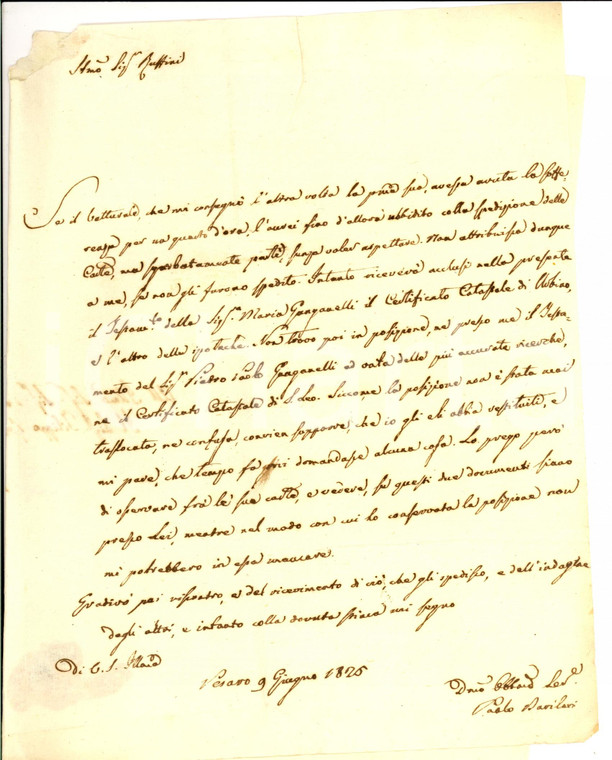 Stmō. Sigr. Ruffini
Se il Vetturale, che mi consegnò l'altra volta la pma sua, avesse avuta la soffe-
renza per un quarto d'ora, l'avrei fino d'allora ubbidito colla spedizione delle
Carte, ma partì, senza voler aspettare. Non attribuisca dunque
a me, se non gli furono spedite. Intanto riceverà acclusi nella presente
il Testamto. della Sigra. Maria Ganganelli il Certificato Catastale di Urbino,
e l'altro delle ipoteche. Non trovo poi in posizione, ne presso me il Testa-
mento del Sigr. Pietro Paolo Ganganelli ad onta delle più accurate ricerche,
ne il Certificato Catastale di S. Leo. Siccome la posizione non è stata mai
traslocata, ne confusa, convien supporre, che io gli eli abbia restituiti, e
mi pare, che tempo fà mi domandasse alcuna cosa. La prego però
di osservare frà le sue carte, e vedere, se questi due documenti siano
presso Lei, mentre nel modo con cui ho conservata la posizione non
mi potrebbero in essa mancare.
Gradirò poi riscontro, e del ricevimento di ciò, che gli spedisco, e dell'indagine
degli altri, e intanto colla dovuta stima mi segno
di V. S. Illma
Pesaro 9 Giugno 1825
Dmo Obblmo Ser.
Paolo Barilari